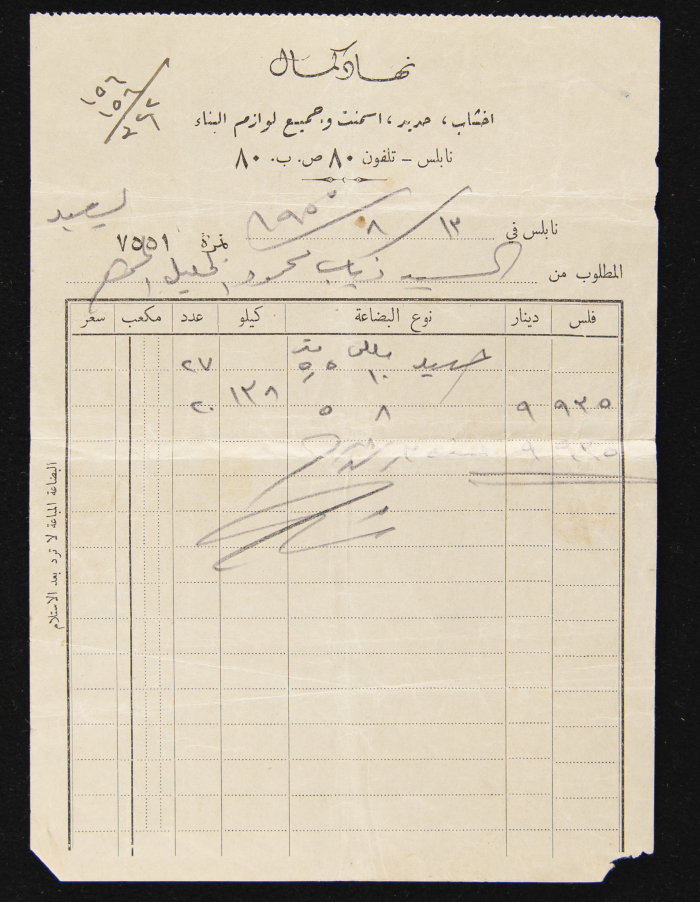 نهاد كمال
اخشاب، حديد، اسمنت وجميع لوازم البناء
نابلس - تلفون ٨٠ ص. ب. ٨٠
نابلس في ١٣ / ٨ / ١٩٥٥ نمرة ٧٥٥١
المطلوب من السيد ذياب محمود
فلس دينار نوع البضاعة كيلو عدد مكعب سعر
حديد ١٠ ٢٧
٩٣٥ ٩ ٨ ٥ ١٣٨ ٢٠
٩٣٥ ٩
البضاعة المباعة لا ترد بعد الاستلام